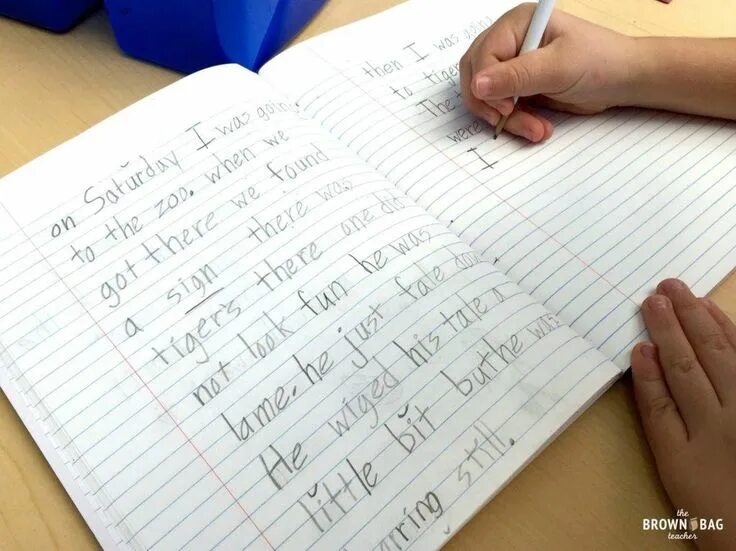 on Saturday I was going
to the zoo. when we
got there we found
a sign there was
tigers there one did
not look fun he was
lame. he just fale down
He wiged his tale a
little bit buthe was
ring still.
then I was going
to tiger
The
were
I
the
BROWN BAG
teacher